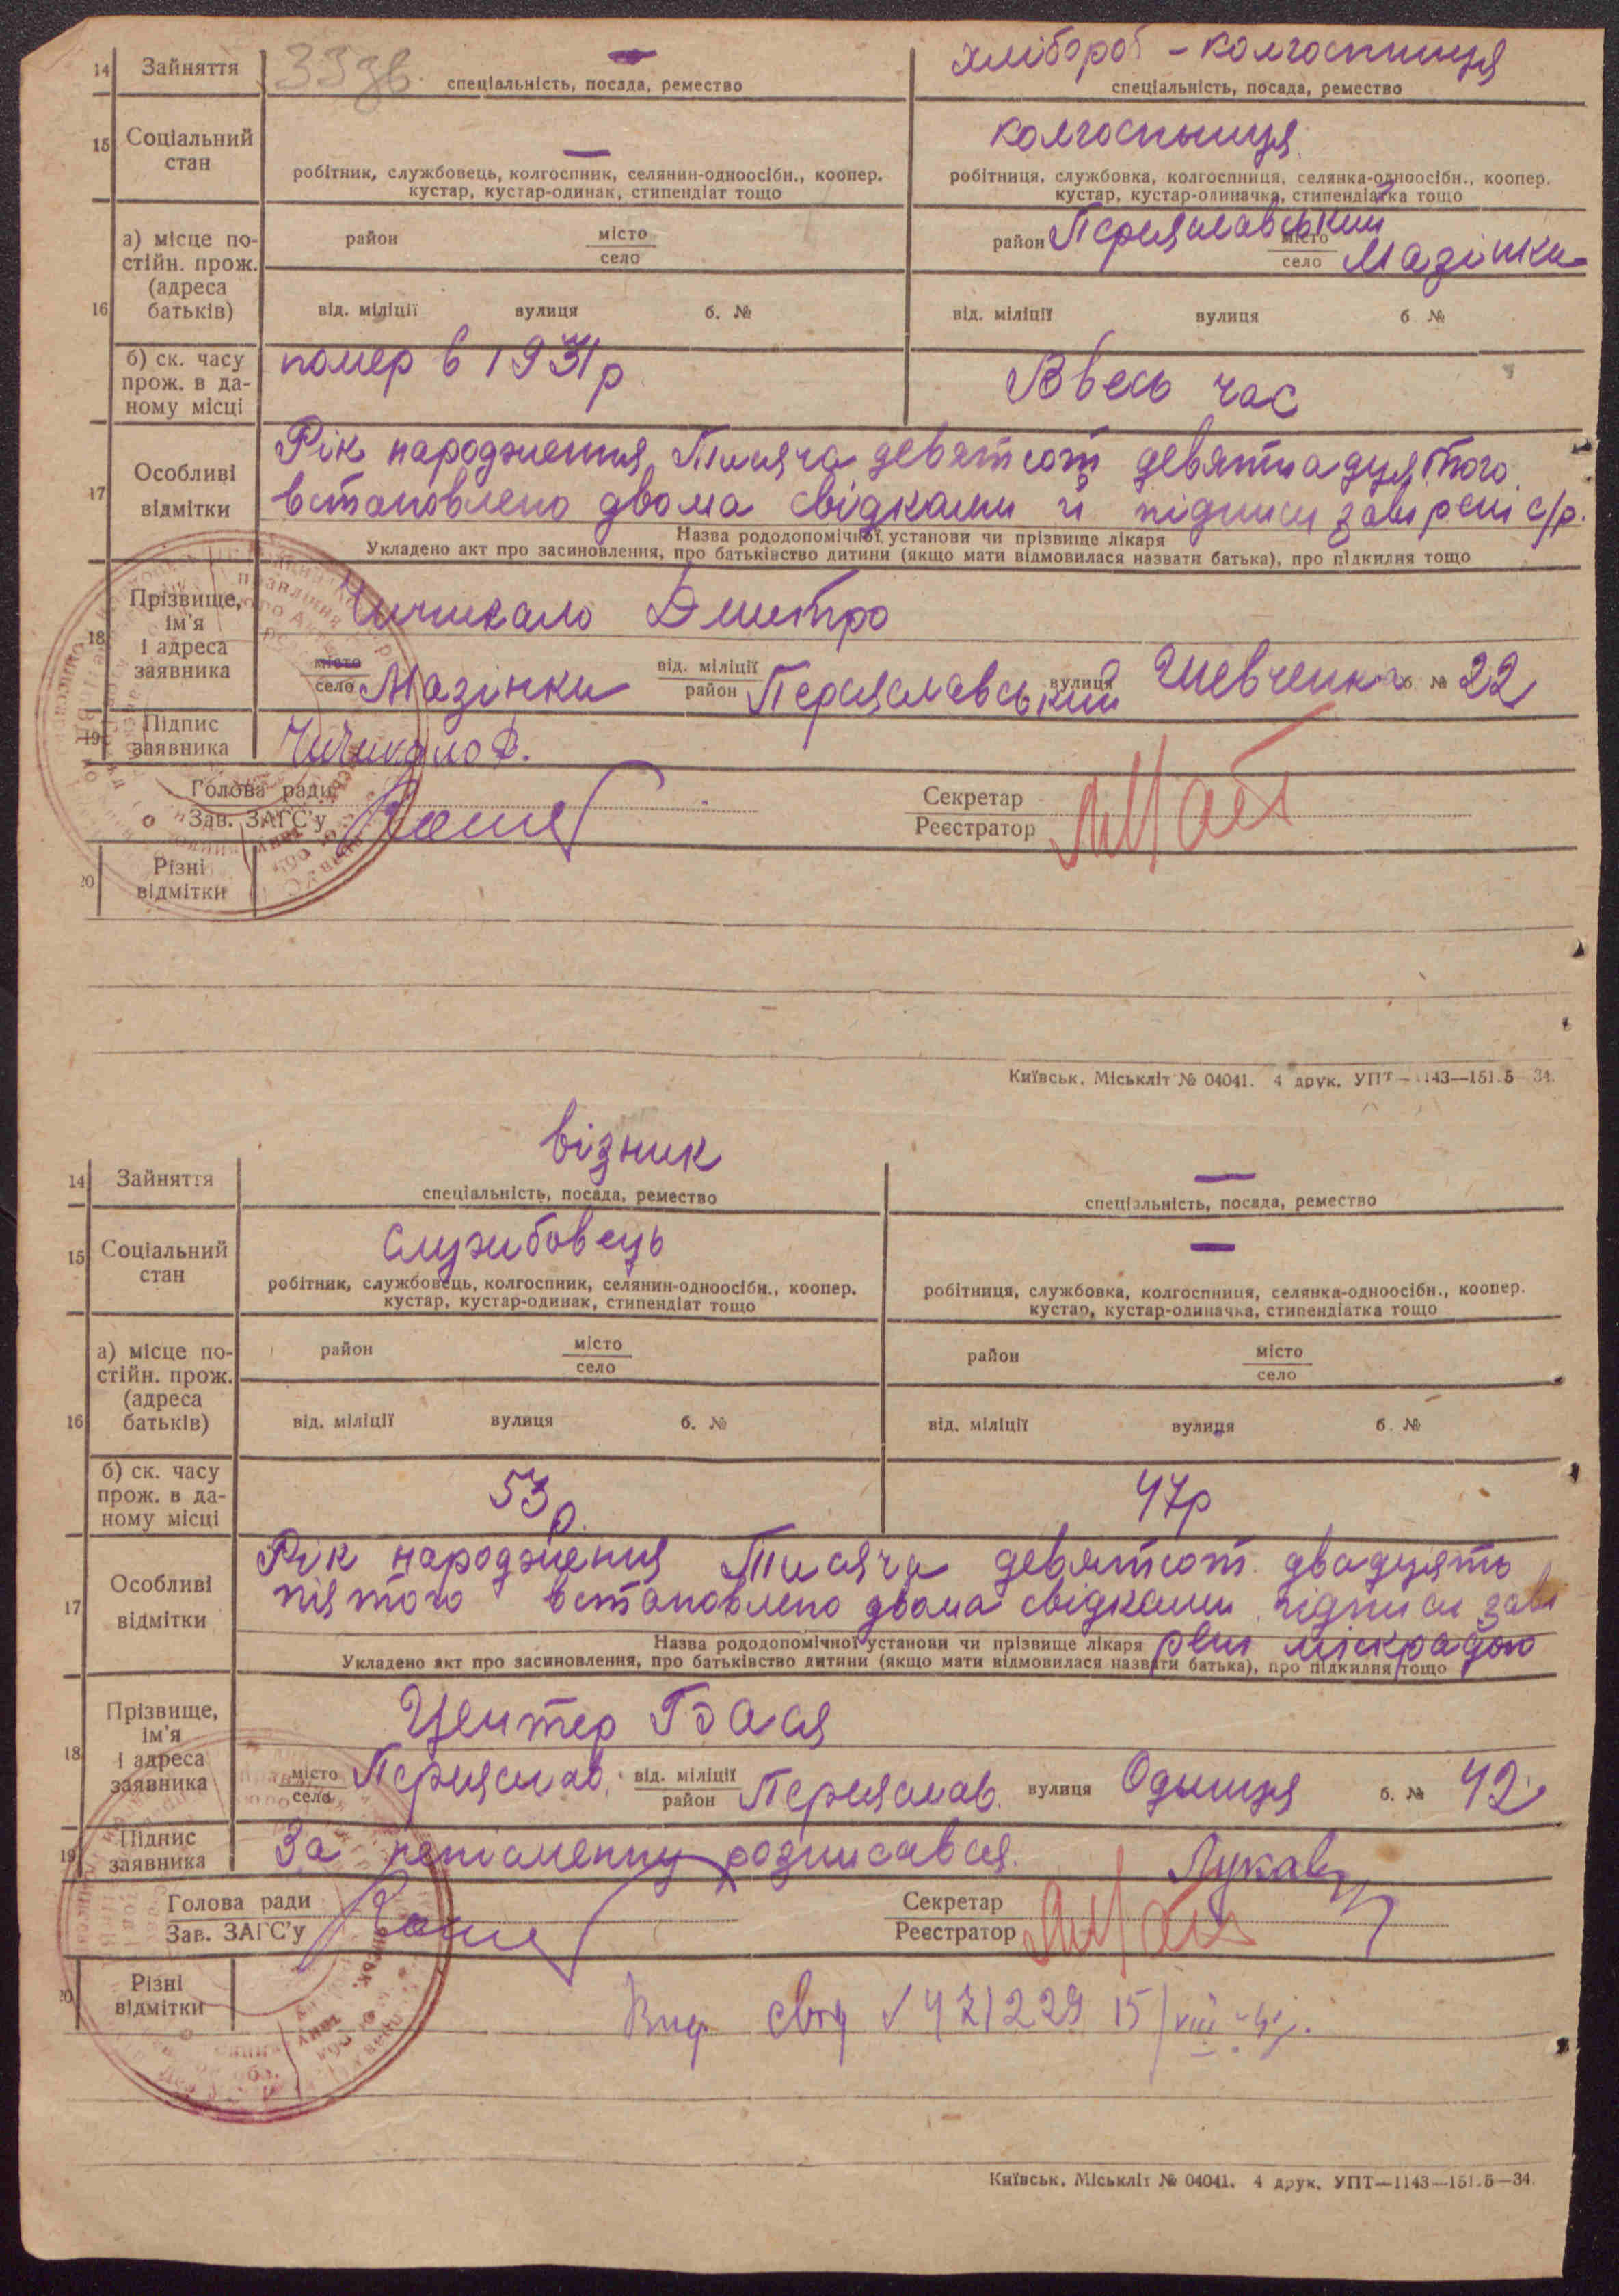 14 Зайняття 33 зв. —
спеціальність, посада, ремество
хлібороб - колгоспниця
спеціальність, посада, ремество
15 Соціальний стан
—
робітник, службовець, колгоспник, селянин-одноосібн., коопер.
кустар, кустар-одинак, стипендіат тощо
колгоспниця
робітниця, службовка, колгоспниця, селянка-одноосібн., коопер.
кустар, кустар-одиначка, стипендіатка тощо
16 а) місце по-
стійн. прож.
(адреса
батьків)
район місто
село
від. міліції вулиця б. №
район Переяславський місто
село Мазінки
від. міліції вулиця б №
б) ск. часу
прож. в да-
ному місці
помер в 1931 р
Ввесь час
17 Особливі
відмітки
Рік народження Тисяча девятсот девятнадцятого
встановлено двома свідками й підписи завірені с/р.
Назва рододопомічної установи чи прізвище лікаря
Укладено акт про засиновлення, про батьківство дитини (якщо мати відмовилася назвати батька), про підкидня тощо
18 Прізвище,
ім'я
і адреса
заявника
Чичикало Дмитро
місто
село Мазінки від. міліції
район Переяславський вулиця Шевченка б. № 22
19 Підпис
заявника
Чичикало Д.
Голова ради
Зав. ЗАГС'у
Секретар
Реєстратор
20 Різні
відмітки
Київськ. Міськліт № 04041. 4 друк. УПТ—1143—151.5—34.
візник
14 Зайняття
спеціальність, посада, ремество
—
спеціальність, посада, ремество
15 Соціальний
стан
службовець
робітник, службовець, колгоспник, селянин-одноосібн., коопер.
кустар, кустар-одинак, стипендіат тощо
—
робітниця, службовка, колгоспниця, селянка-одноосібн., коопер.
кустар, кустар-одиначка, стипендіатка тощо
16 а) місце по-
стійн. прож.
(адреса
батьків)
район місто
село
від. міліції вулиця б. №
район місто
село
від. міліції вулиця б. №
б) ск. часу
прож. в да-
ному місці
53 р.
47р
17 Особливі
відмітки
Рік народження Тисяча девятсот двадцять
пятого встановлено двома свідками підписи заві
рені міскрадою
Назва рододопомічної установи чи прізвище лікаря
Укладено акт про засиновлення, про батьківство дитини (якщо мати відмовилася назвати батька), про підкидня тощо
18 Прізвище,
ім'я
і адреса
заявника
Центер Бася
місто
село Переяслав. від. міліції
район Переяслав. вулиця Одинця б. № 42
19 Підпис
заявника
За неписменну розписався
Голова ради
Зав. ЗАГС'у
Секретар
Реєстратор
20 Різні
відмітки
471229 15/VIII
Київськ. Міськліт № 04041. 4 друк. УПТ—1143—151.5—34.